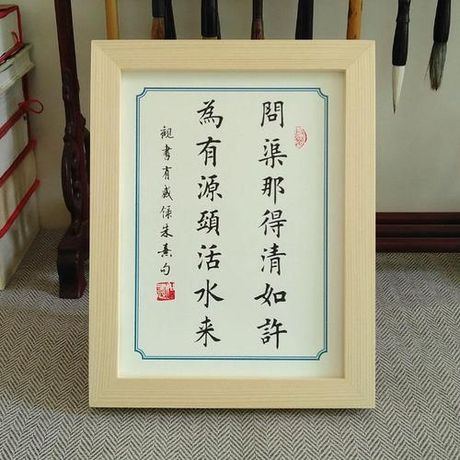 問渠那得清如許
為有源頭活水来
觀書有感錄朱熹句